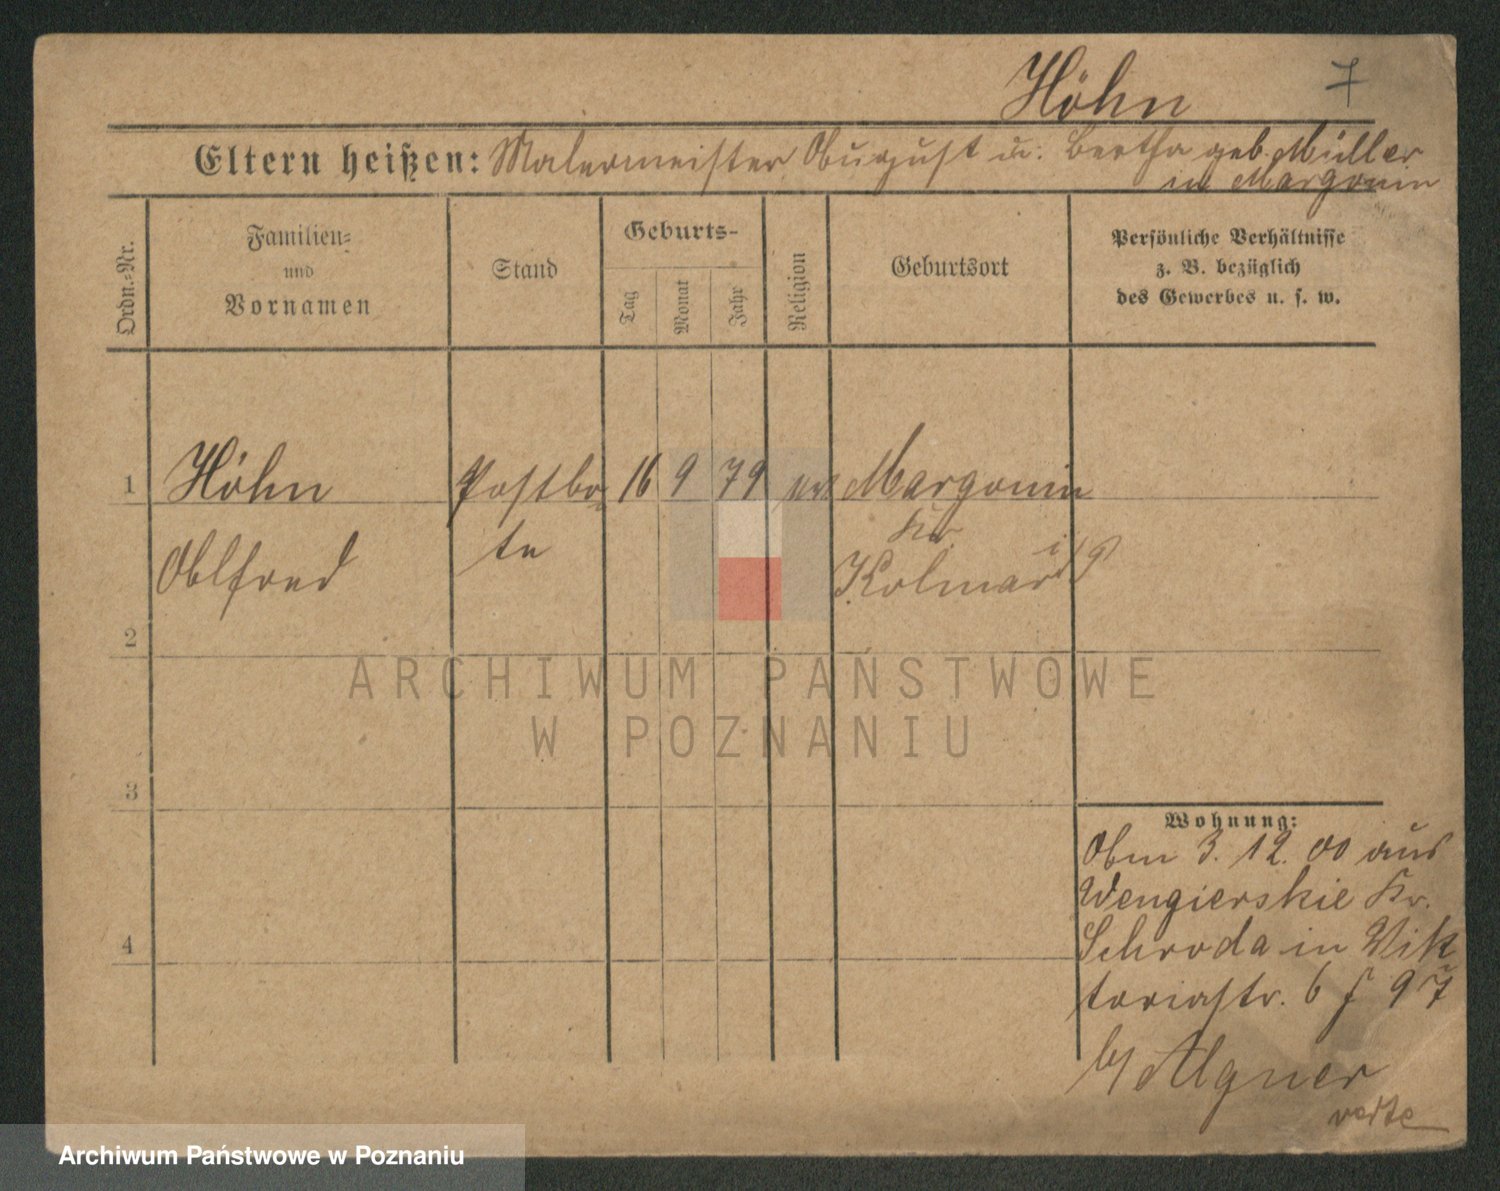 Höhn 7
Eltern heißen: Malermeister August u. Bertha geb. Müller
in Margonin
Ordn.-Nr.
Familien-
und
Vornamen
Stand
Geburts-
Tag
Monat
Jahr
Religion
Geburtsort
Persönliche Verhältnisse
z. B. bezüglich
des Gewerbes u. s. w.
1 Höhn Postbo- 16 9 79 ev Margonin
Alfred te Kr.
Kolmar i/P
2
ARCHIWUM PAŃSTWOWE
W POZNANIU
3
Wohnung:
Am 3. 12. 00 aus
Wengierskie Kr.
Schroda in Vik
toriastr. 6
4
b/
verte
Archiwum Państwowe w Poznaniu